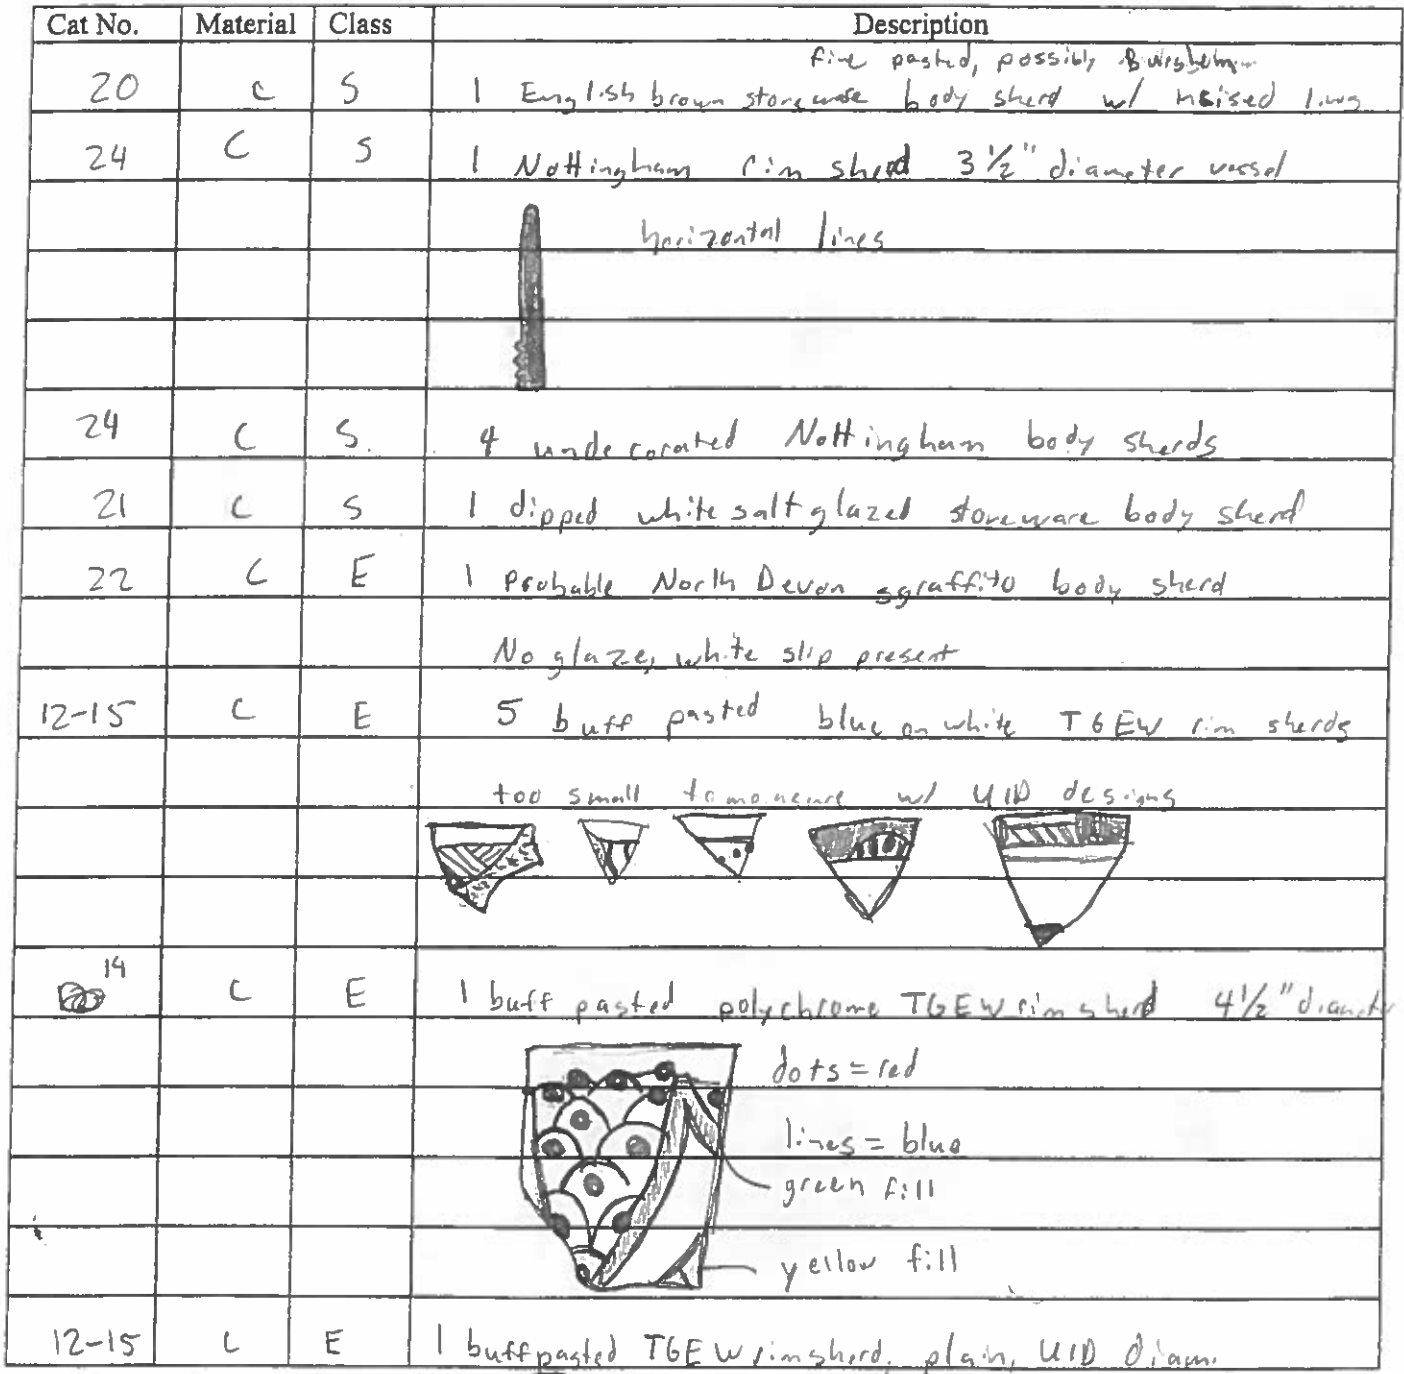 Cat No. Material Class Description
fine pasted, possibly
20 C S 1 English brown stoneware body sherd w/ incised lines
24 C S 1 Nottingham rim sherd 3 1/2" diameter vessel
horizontal lines
24 C S. 4 undecorated Nottingham body sherds
21 C S 1 dipped white salt glazed stoneware body sherd
22 C E 1 Probable North Devon sgraffito body sherd
No glaze, white slip present
12-15 C E 5 buff pasted blue on white TGEW rim sherds
too small to measure w/ UID designs
14 C E 1 buff pasted polychrome TGEW rim sherd 4 1/2" diameter
dots = red
lines = blue
green fill
yellow fill
12-15 C E 1 buff pasted TGEW rim sherd, plain, UID diam.